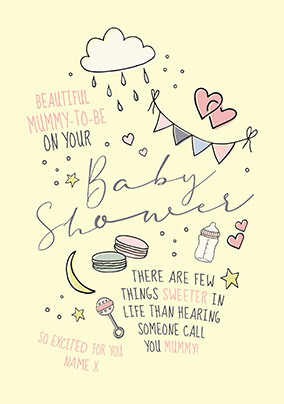 BEAUTIFUL
MUMMY-TO-BE
ON YOUR
Baby
Shower
THERE ARE FEW
THINGS SWEETER IN
LIFE THAN HEARING
SOMEONE CALL
YOU MUMMY!
SO EXCITED FOR YOU
NAME X